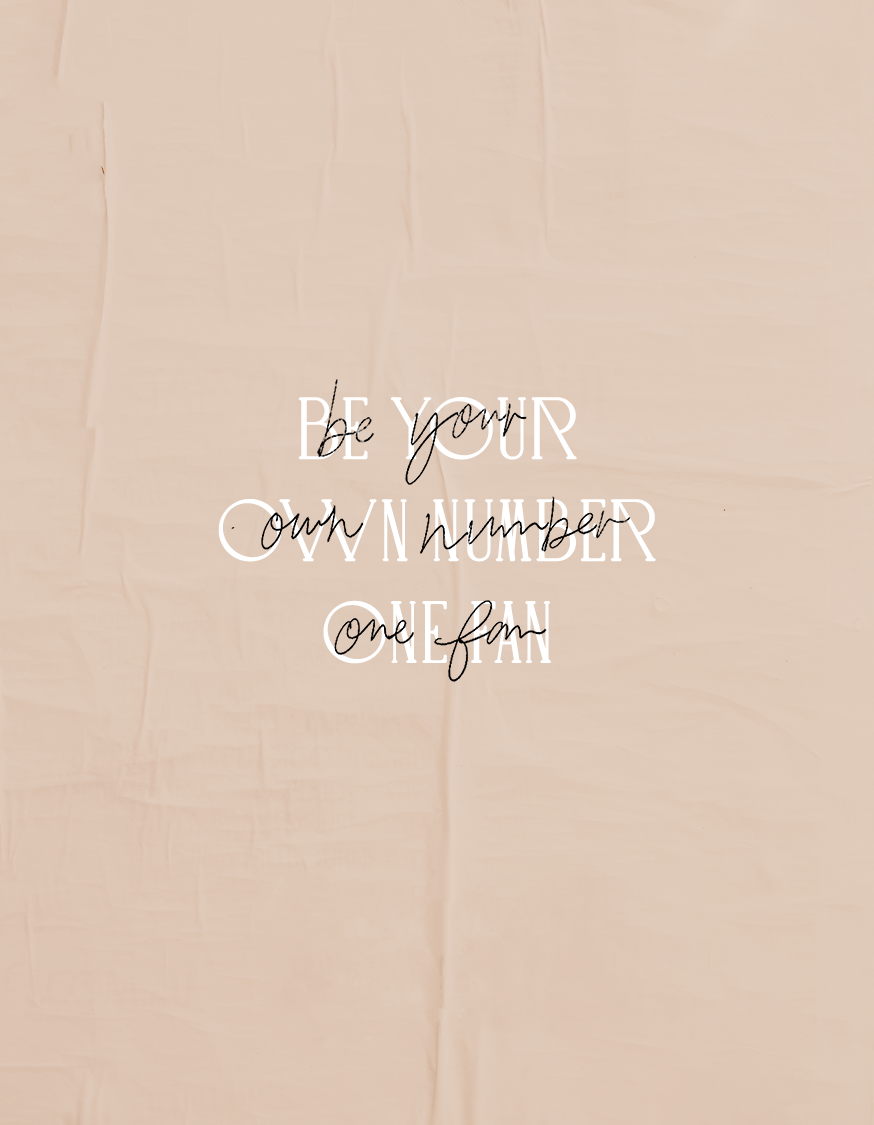 BE YOUR
be your
OWN NUMBER
own number
ONE FAN
one fan